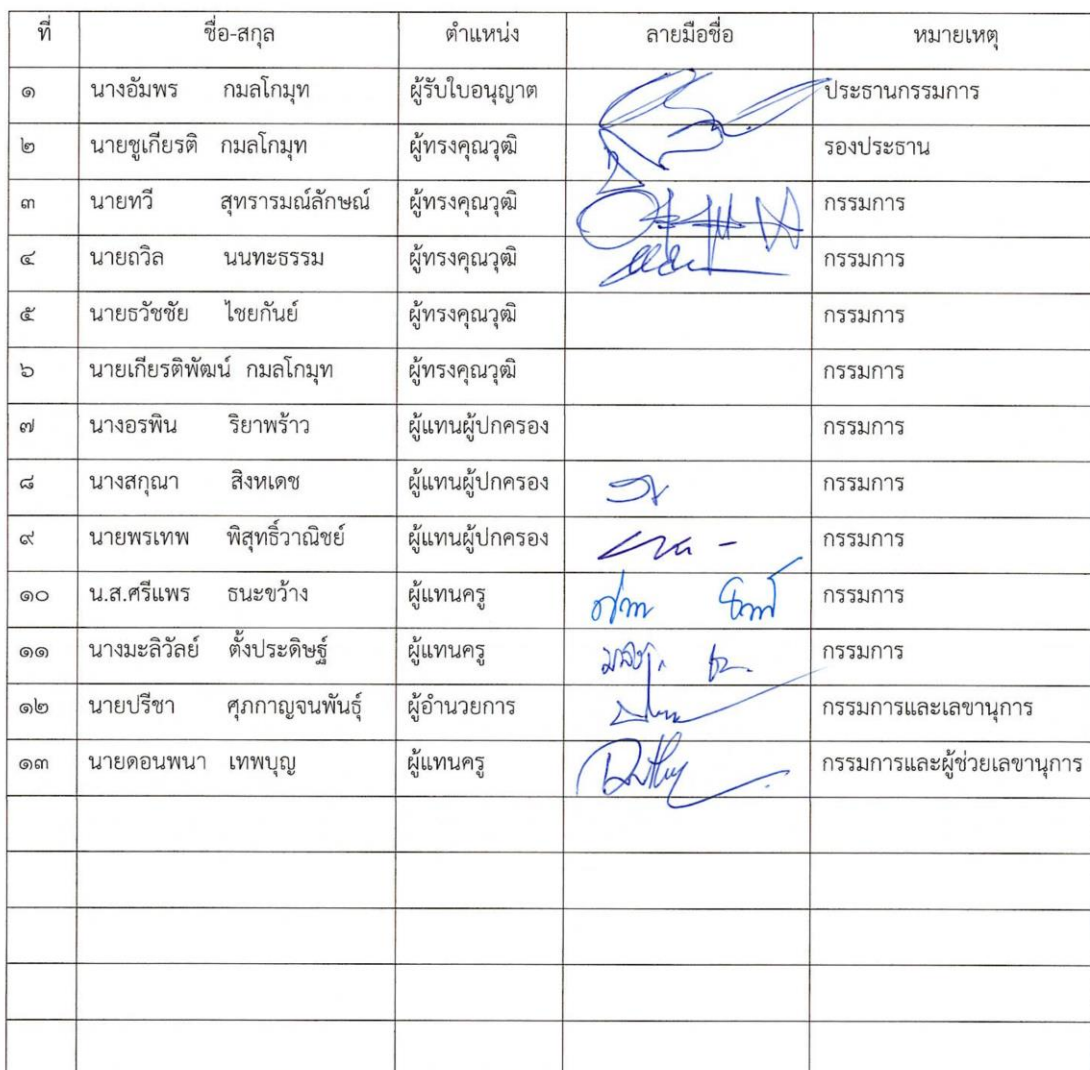 ที่ ชื่อ-สกุล ตำแหน่ง ลายมือชื่อ หมายเหตุ
๑ นางอัมพร กมลโกมุท ผู้รับใบอนุญาต ประธานกรรมการ
๒ นายชูเกียรติ กมลโกมุท ผู้ทรงคุณวุฒิ รองประธาน
๓ นายทวี สุทรารมณ์ลักษณ์ ผู้ทรงคุณวุฒิ กรรมการ
๔ นายถวิล นนทะธรรม ผู้ทรงคุณวุฒิ กรรมการ
๕ นายธวัชชัย ไชยกันย์ ผู้ทรงคุณวุฒิ กรรมการ
๖ นายเกียรติพัฒน์ กมลโกมุท ผู้ทรงคุณวุฒิ กรรมการ
๗ นางอรพิน ริยาพร้าว ผู้แทนผู้ปกครอง กรรมการ
๘ นางสกุณา สิงหเดช ผู้แทนผู้ปกครอง กรรมการ
๙ นายพรเทพ พิสุทธิ์วาณิชย์ ผู้แทนผู้ปกครอง กรรมการ
๑๐ น.ส.ศรีแพร ธนะขว้าง ผู้แทนครู กรรมการ
๑๑ นางมะลิวัลย์ ตั้งประดิษฐ์ ผู้แทนครู กรรมการ
๑๒ นายปรีชา ศุภกาญจนพันธุ์ ผู้อำนวยการ กรรมการและเลขานุการ
๑๓ นายดอนพนา เทพบุญ ผู้แทนครู กรรมการและผู้ช่วยเลขานุการ